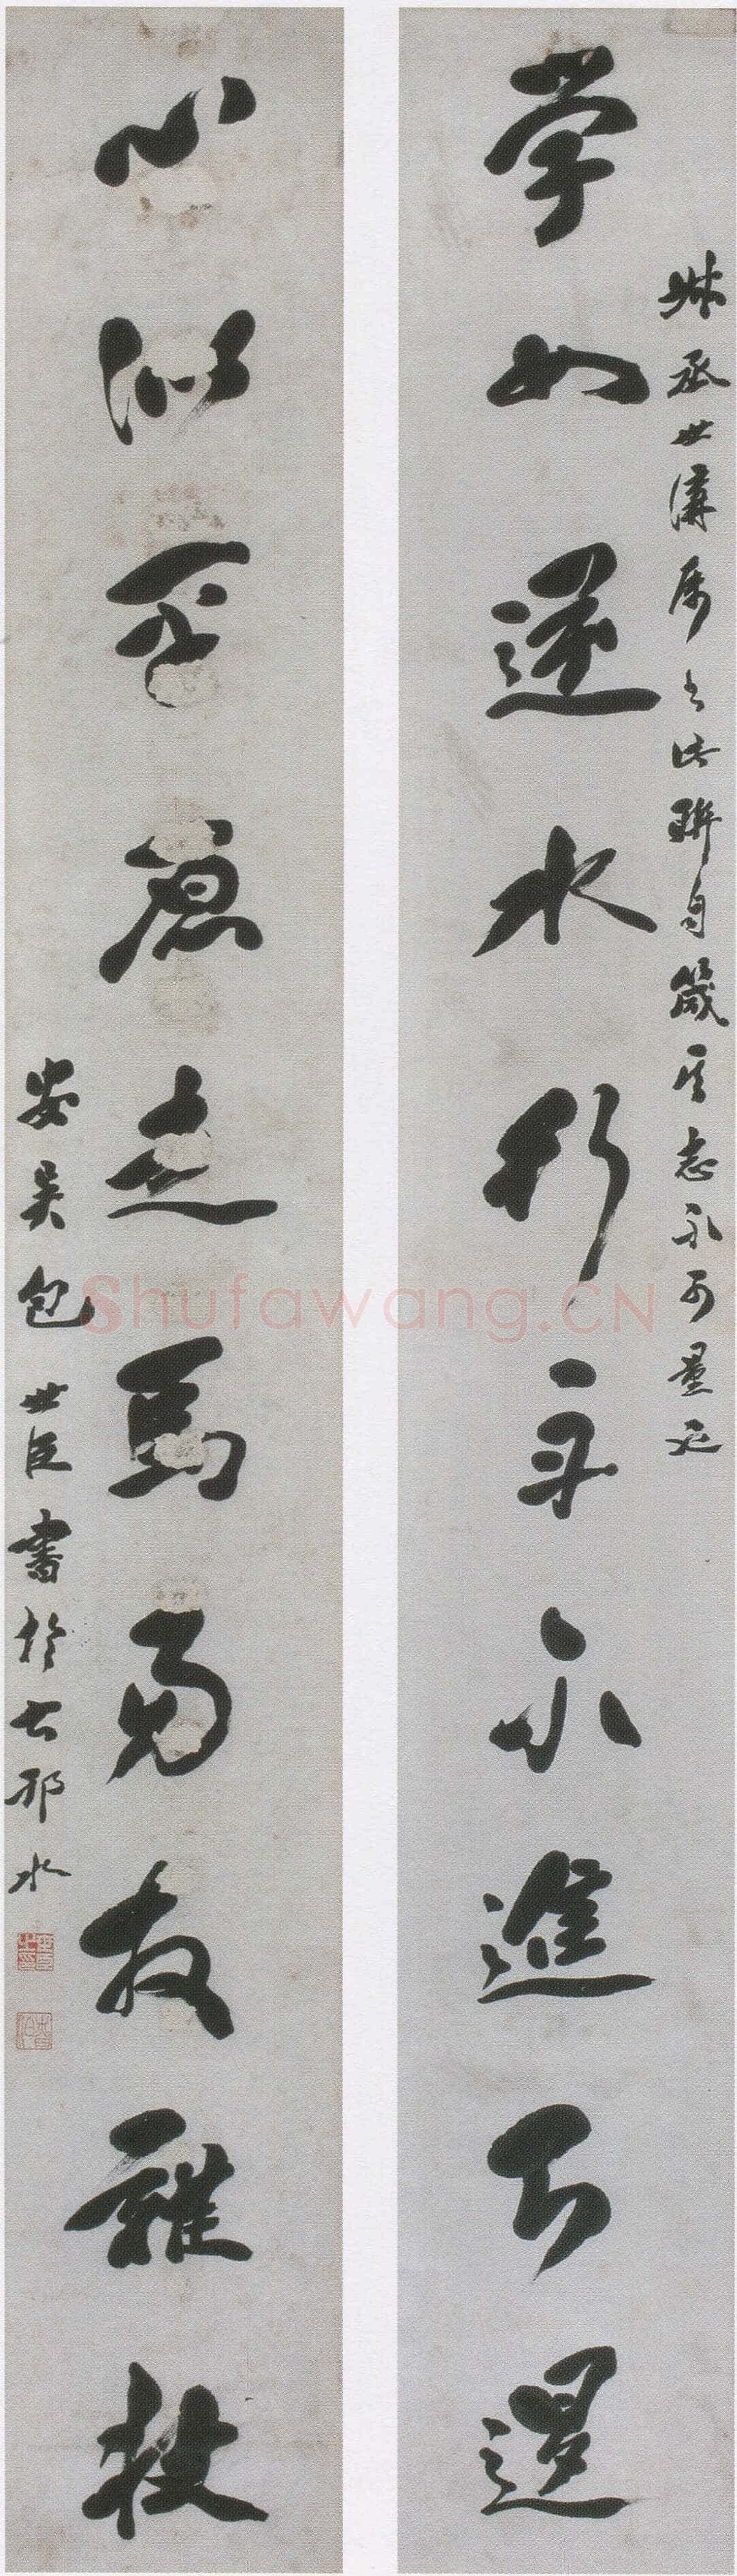 丞世講屬書此聯自箴其志不可量已
学如逆水行舟不進即退
心似平原走馬易放難收
安吳包世臣書於古邗水
Shufawang.CN